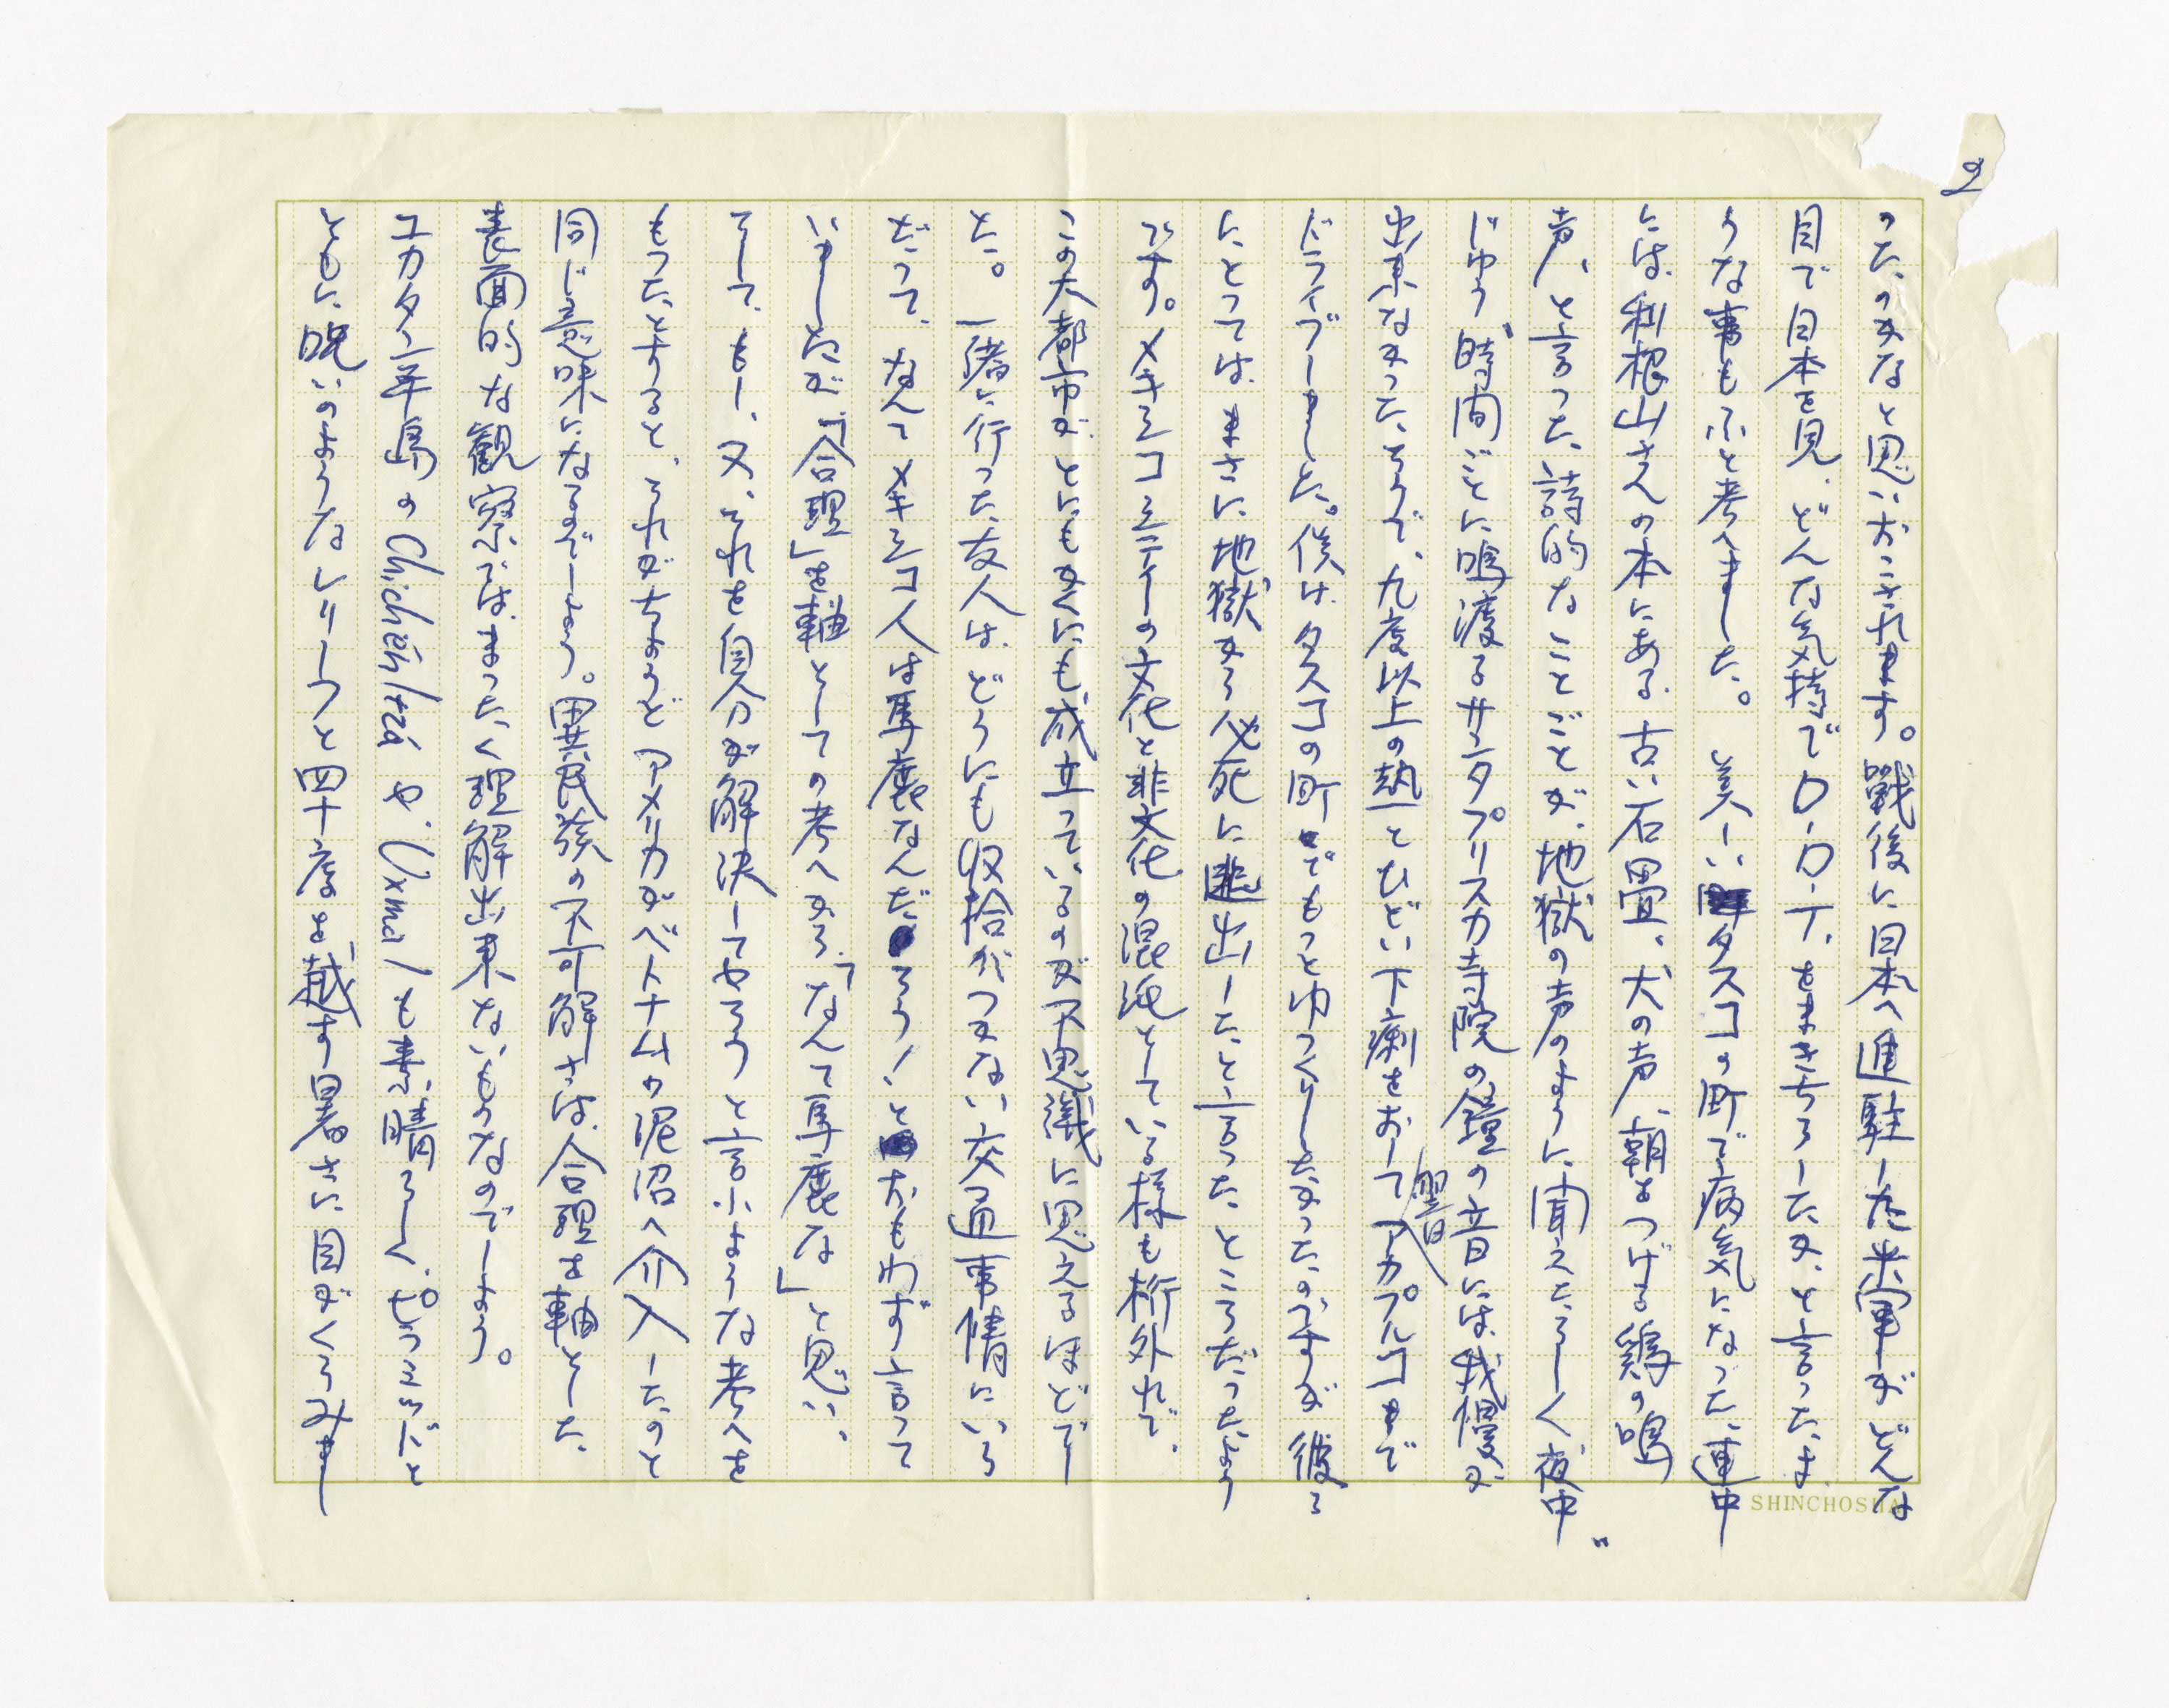 2
ったのかなと思いおこされます。戦後に日本へ進駐した米軍がどんな
目で日本を見、どんな気持でD・D・T・をまきちらしたか、と言ったよ
うな事もふと考へました。 美しいタスコの町で病気になった連中
には、利根山さんの本にある、古い石畳、犬の声、朝をつげる鶏の鳴
声、と言った詩的なことごとが、地獄の声のように聞えたらしく、夜中
じゅう、時間ごとに鳴渡るサンタプリスカ寺院の鐘の音には、我慢が
出来なかったそうで、九度以上の熱とひどい下痢をおしてアカプルコまで
ドライブしました。僕は、タスコの町でもっとゆっくりしたかったのですが、彼ら
にとっては、まさに地獄から必死に逃出したと言ったところだったよう
です。メキシコシティーの文化と非文化の混沌としている様も桁外れで、
この大都市が、とにもかくにも成立っているのが不思議に思えるほどでし
た。一緒に行った友人は、どうにも収拾がつかない交通事情にいら
だって、なんてメキシコ人は馬鹿なんだろう!とおもわず言って
いましたが、「合理」を軸としての考へから、「なんて馬鹿な」と思い、
そして、もし、又、それを自分が解決してやろうと言ふような考へを
もったとすると、それがちょうどアメリカがベトナムの泥沼へ介入したのと
同じ意味になるでしょう。異民族の不可解さは、合理を軸とした
表面的な観察では、まったく理解出来ないものなのでしょう。
ユカタン半島のChichén Itzáや、Uxmalも素晴らしく、ピラミッドと
ともに呪いのようなレリーフと四十度を越す暑さに目がくらみまし
響
SHINCHOSHA